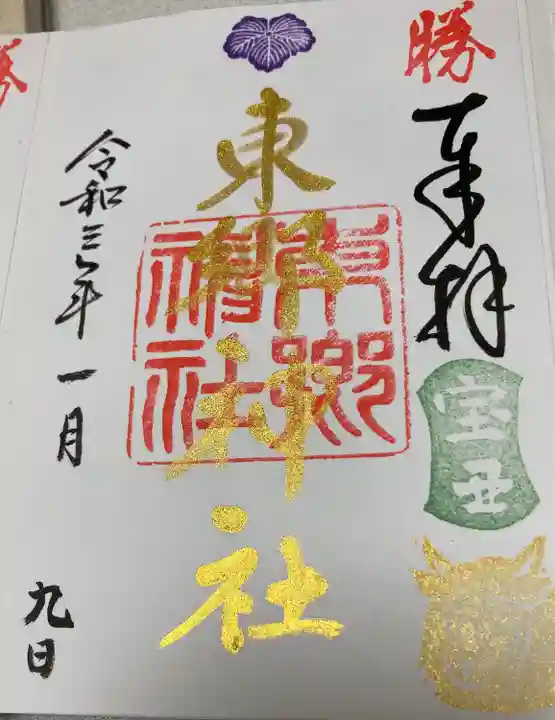 勝
奉拝
宝丑
東郷神社
東郷神社
令和三年一月
九日
勝